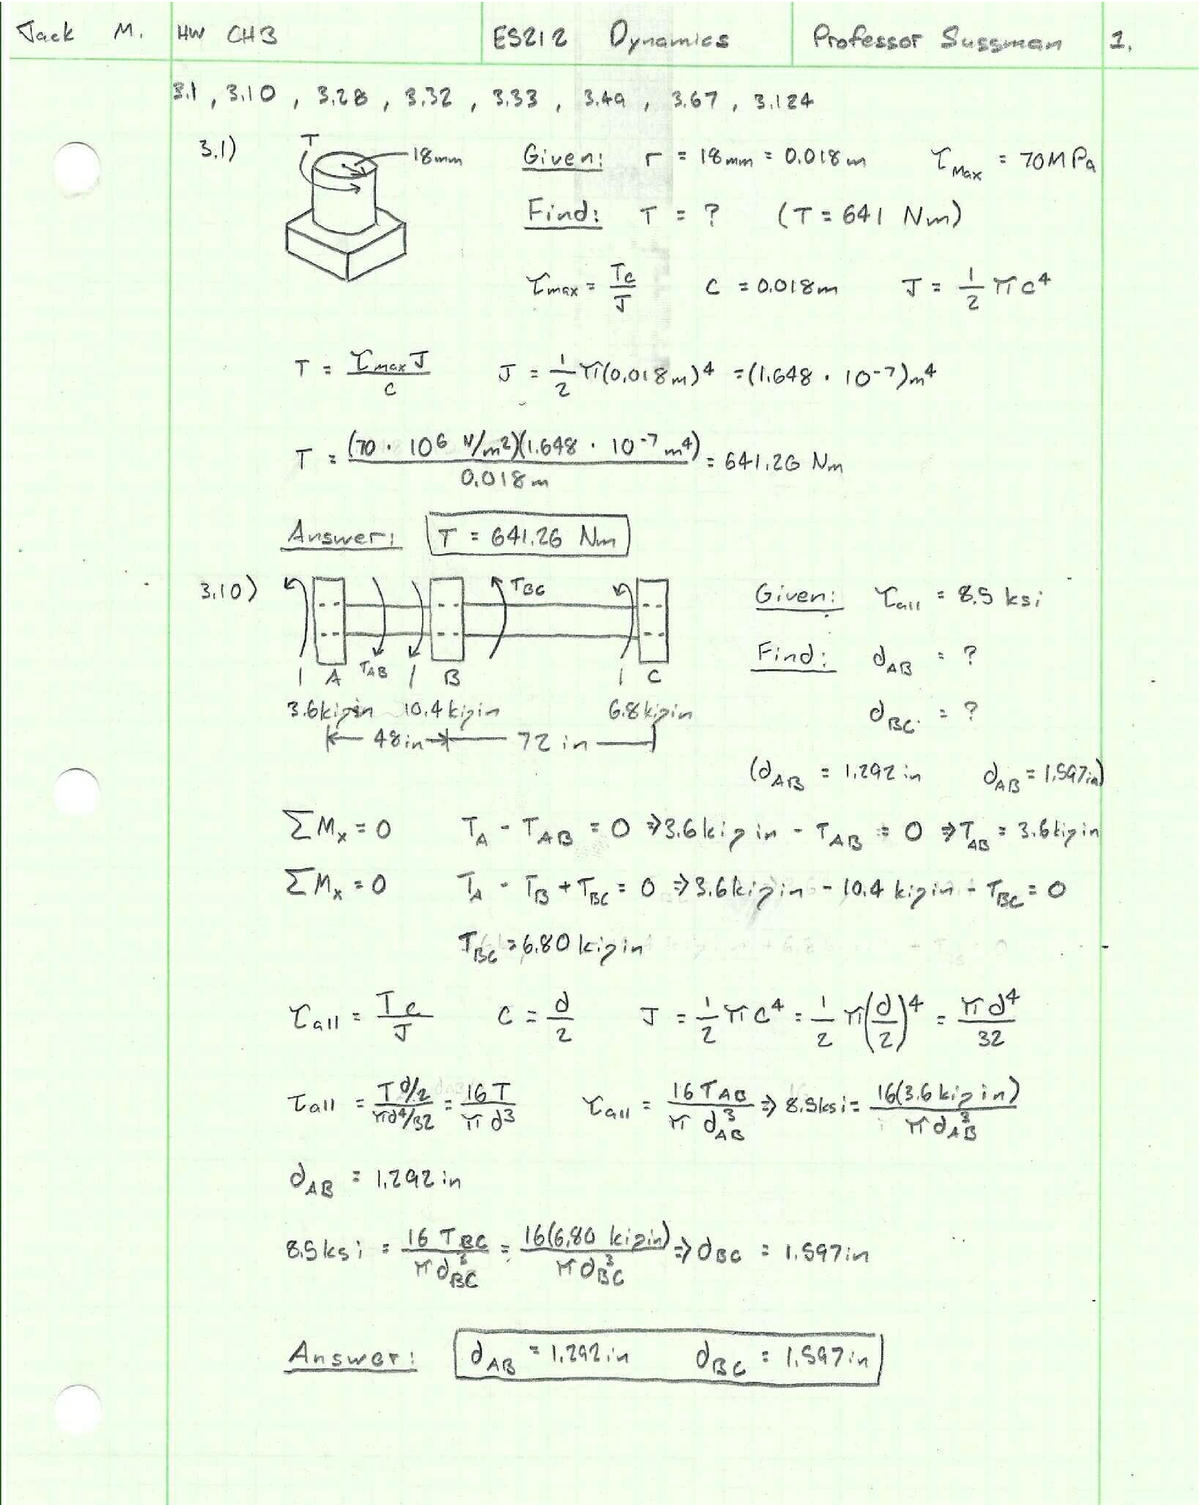 Jack M. HW CH3 ES212 Dynamics Professor Sussman 1.
3.1 , 3.10 , 3.28 , 3.32 , 3.33 , 3.49 , 3.67 , 3.124
3.1) T 18mm Given: r = 18mm = 0.018m τMax = 70MPa
Find: T = ? (T = 641 Nm)
τmax = Tc/J C = 0.018m J = 1/2 πc⁴
T = τmax J/c J = 1/2 π(0.018m)⁴ = (1.648 · 10⁻⁷)m⁴
T = (70 · 10⁶ N/m²)(1.648 · 10⁻⁷ m⁴)/0.018m = 641.26 Nm
Answer: T = 641.26 Nm
3.10) TBC Given: τall = 8.5 ksi
Find: dAB = ?
A TAB B C
3.6kipin 10.4kipin 6.8kipin dBC = ?
48in 72 in
(dAB = 1.292in dAB = 1.597in)
ΣMx = 0 TA - TAB = 0 ⇒ 3.6kipin - TAB = 0 ⇒ TAB = 3.6kipin
ΣMx = 0 TA - TB + TBC = 0 ⇒ 3.6kipin - 10.4 kipin - TBC = 0
TBC = 6.80 kipin
τall = Tc/J C = d/2 J = 1/2 πc⁴ = 1/2 π(d/2)⁴ = πd⁴/32
τall = T d/2/πd⁴/32 = 16T/πd³ τall = 16TAB/πdAB³ ⇒ 8.5ksi = 16(3.6kipin)/πdAB³
dAB = 1.292in
8.5ksi = 16TBC/πdBC³ = 16(6.80 kipin)/πdBC³ ⇒ dBC = 1.597in
Answer: dAB = 1.292in dBC = 1.597in